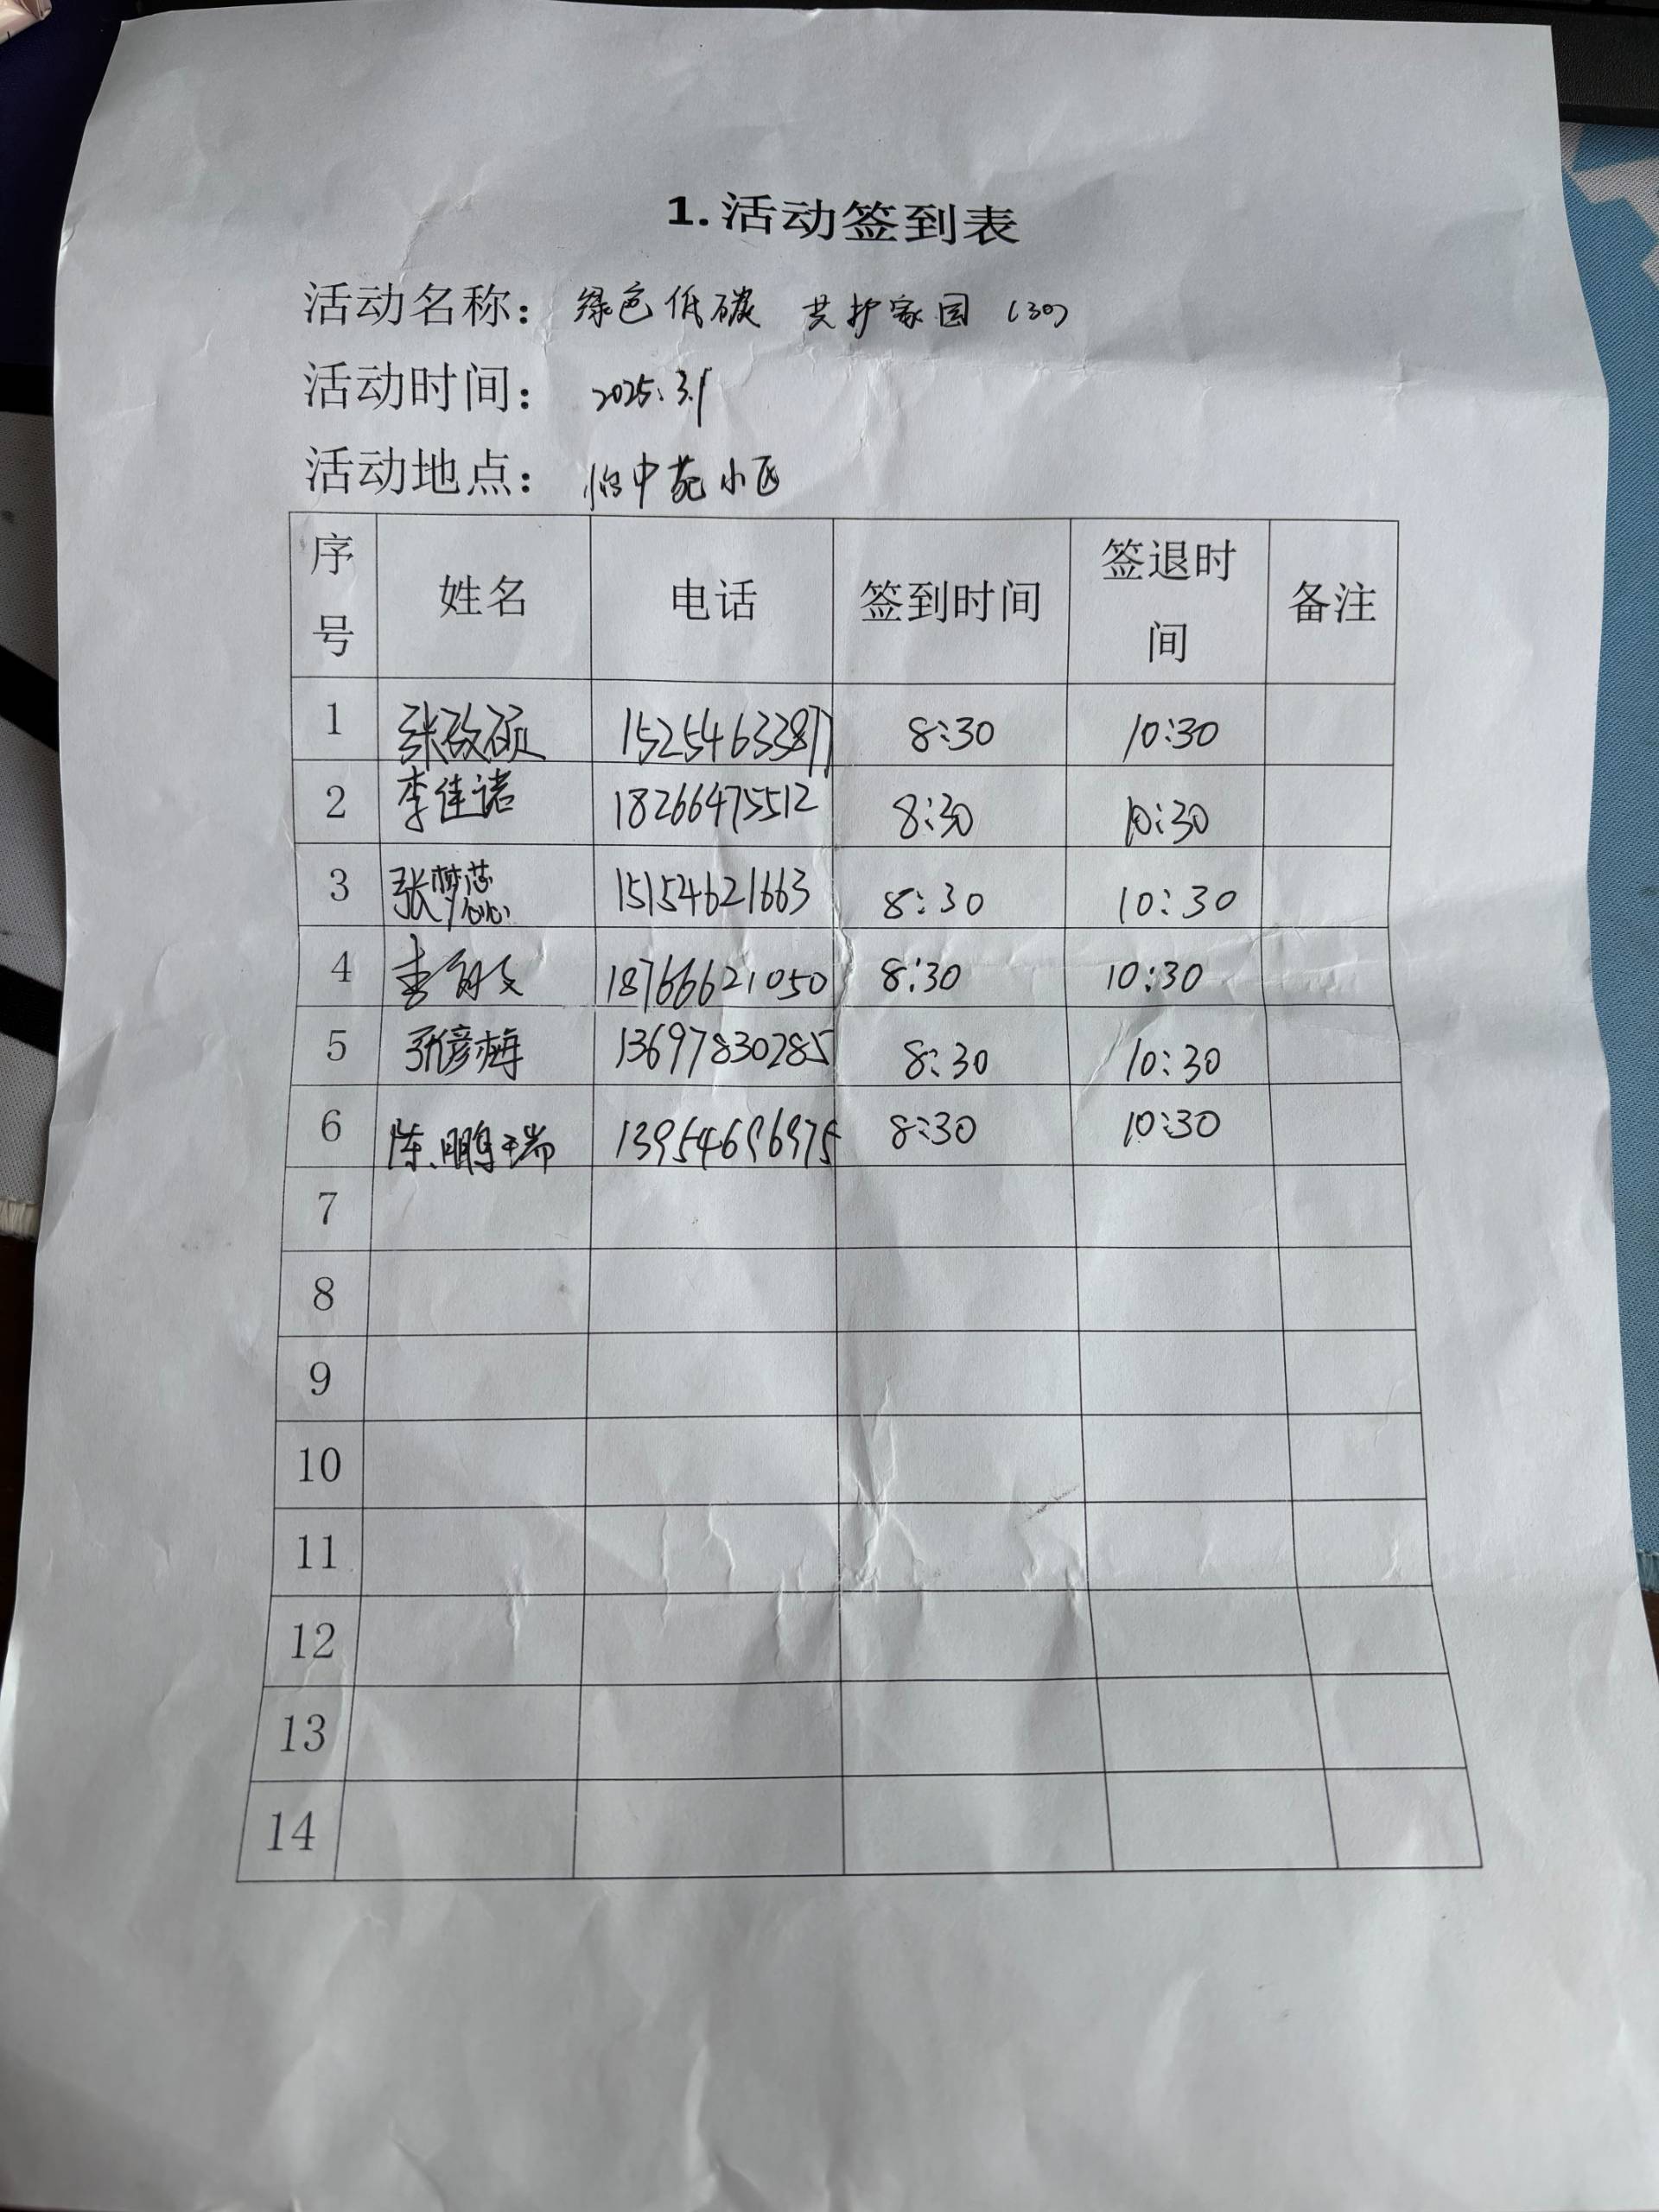 1. 活动签到表
活动名称： 绿色低碳 共护家园 (30)
活动时间： 2025.3.1
活动地点： 怡中苑小区
序号 姓名 电话 签到时间 签退时间 备注
1 张致硕 15254633877 8:30 10:30
2 李佳诺 18266475512 8:30 10:30
3 张梦蕊 15154621663 8:30 10:30
4 李 18766621050 8:30 10:30
5 张彦梅 13697830285 8:30 10:30
6 陈鹏瑞 13954696975 8:30 10:30
7
8
9
10
11
12
13
14